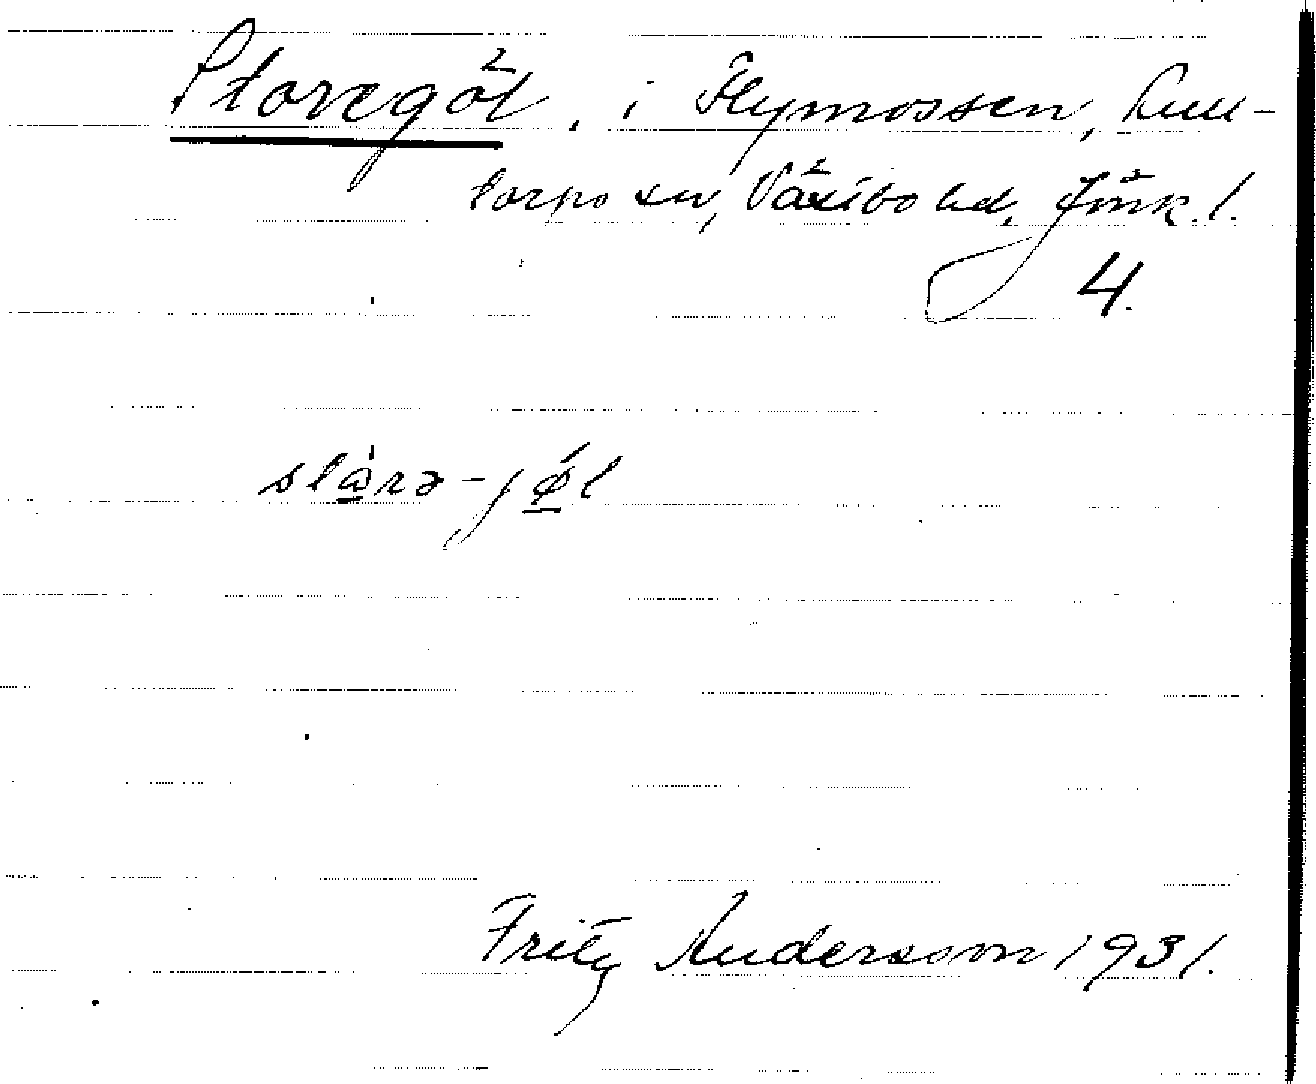 Storegöl, i Flymossen, Kull-
torps sn, Västbo hd, Jönk. l.
4.
stὼrə-jǿl
Fritz Andersson 1931.